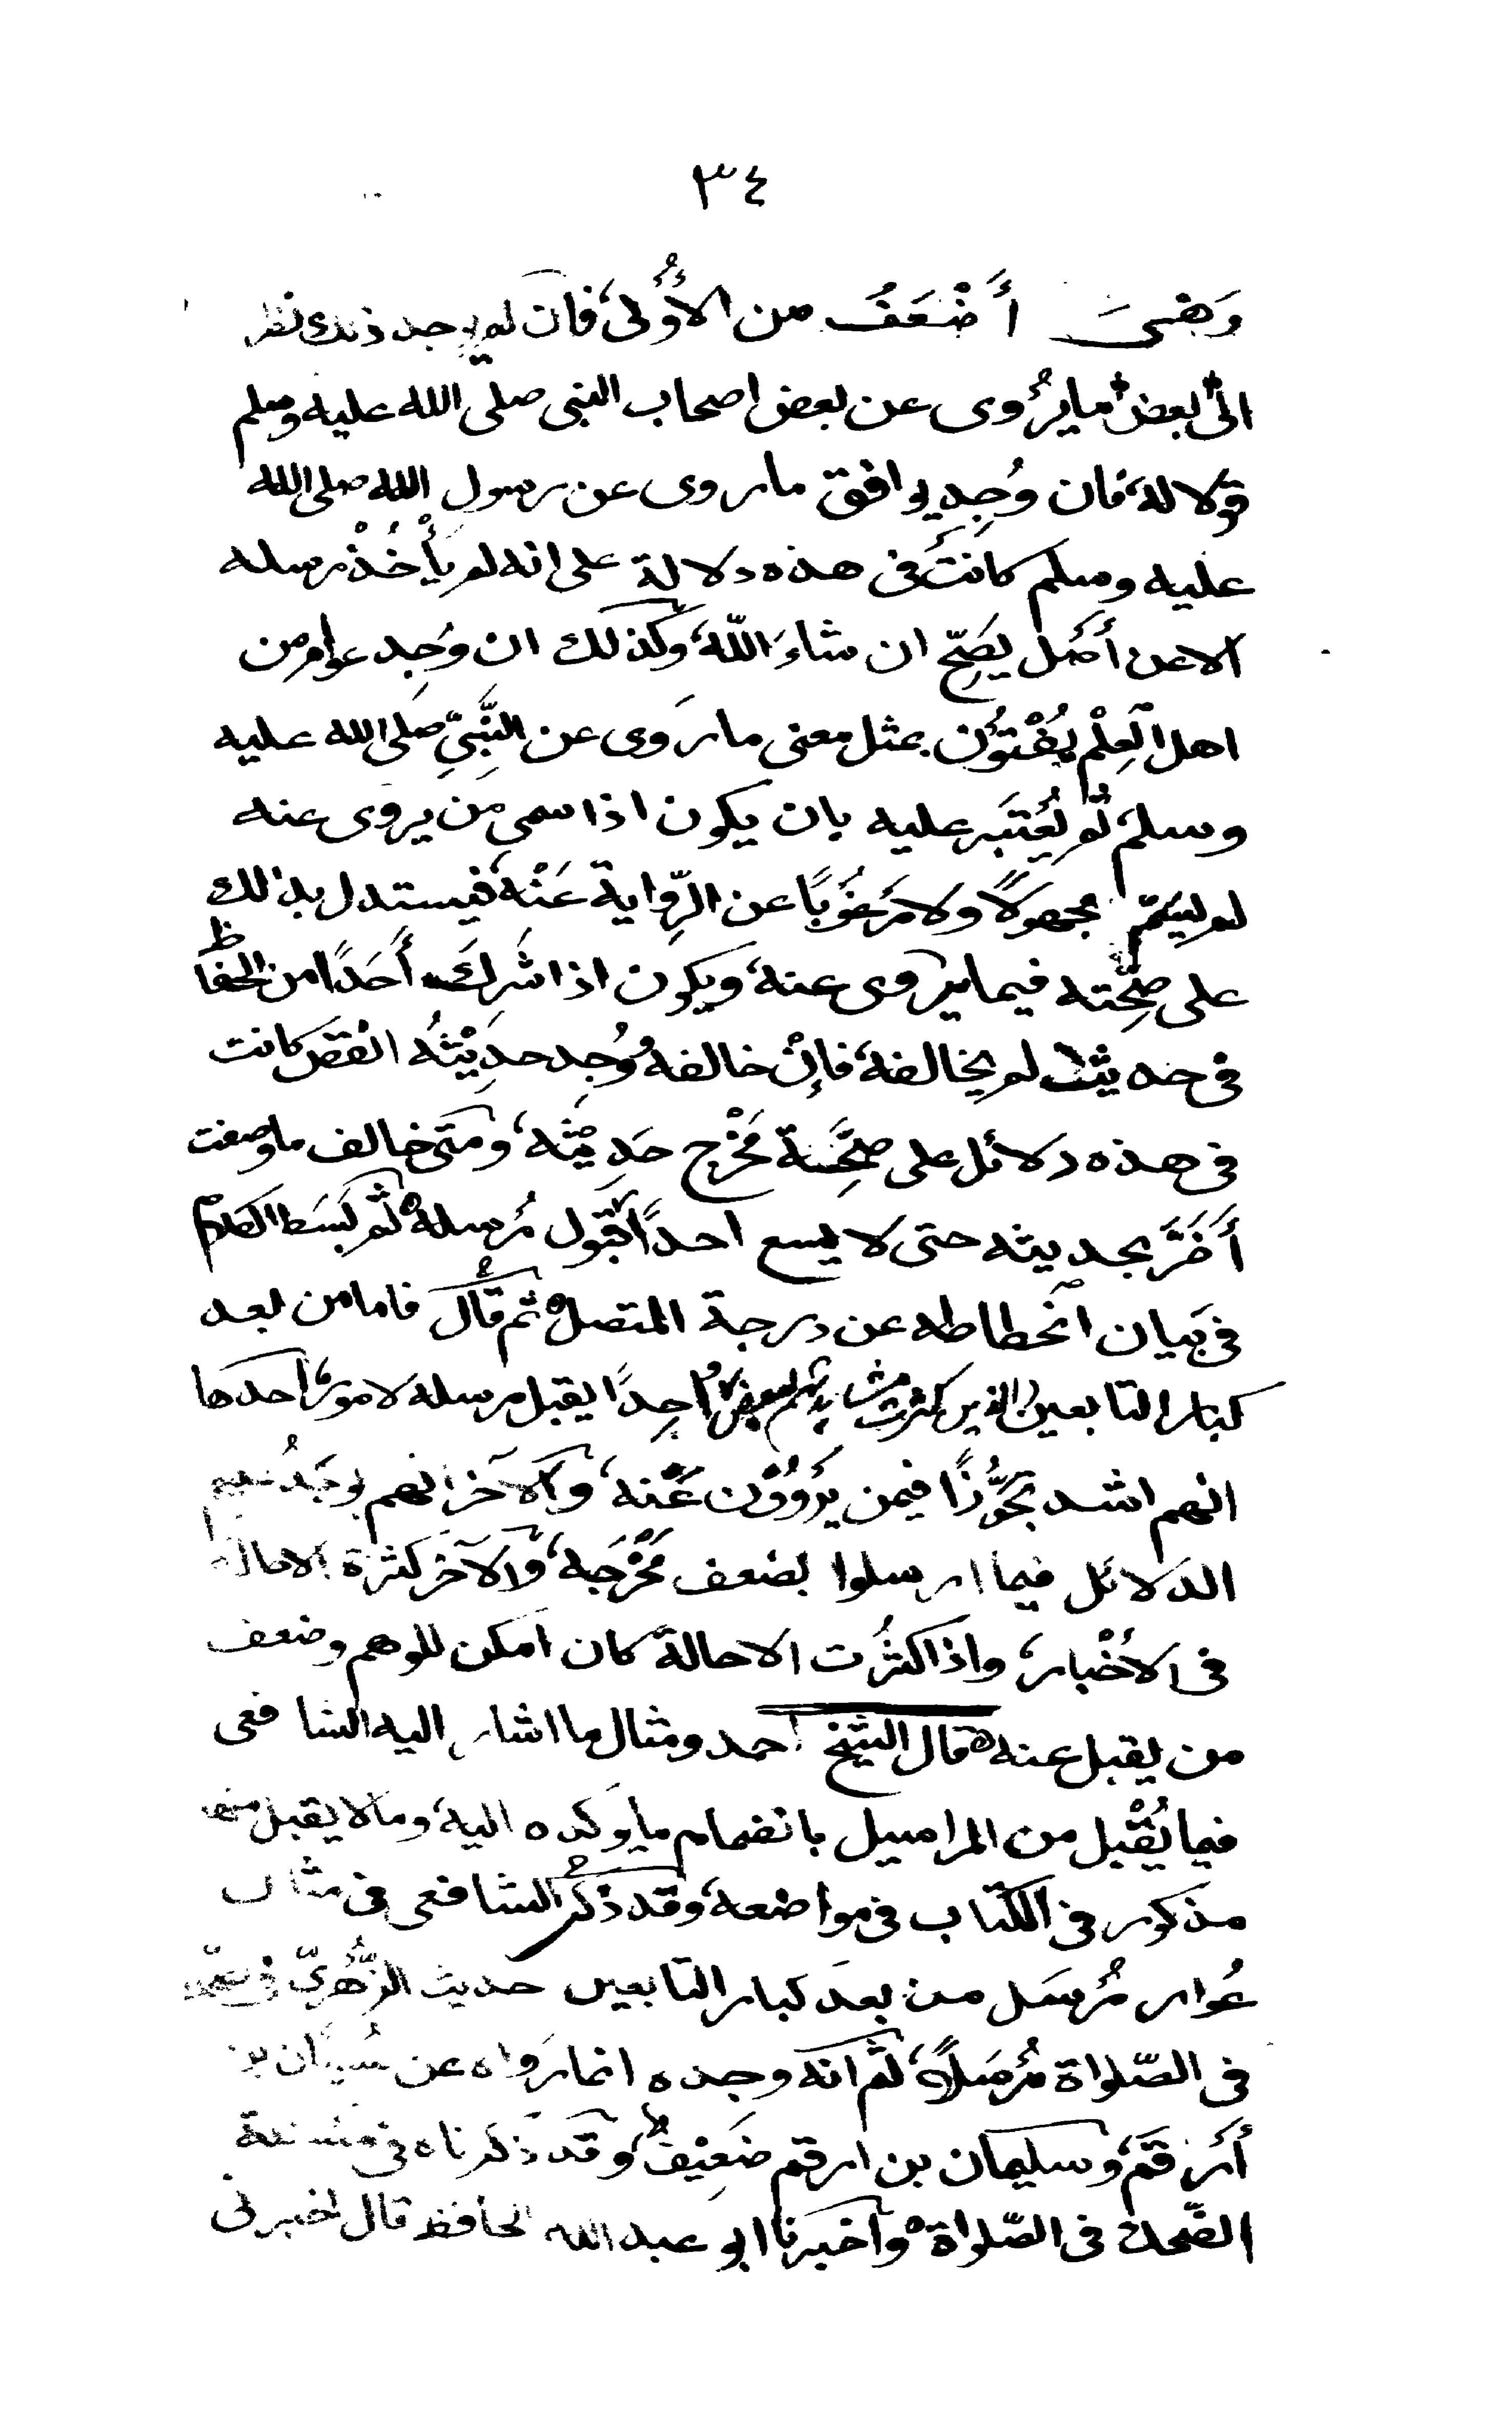 ٣٤
وَهِىَ أَضْعَفُ من الأُوْلى، فان لم يوجد ذلك نظر
الى بعض ما يُرْوى عن بعض اصحاب النبى صلى الله عليه وسلم
قولا له، فان وُجِد يوافق ما روى عن رسول الله صلى الله
عليه وسلم كانت فى هذه دلالة على انه لم يَأْخُذْ مرسله
الا عن أَصْل يَصِحّ ان شاءَ اللّه، وكذلك ان وُجِد عوام من
اهل العِلْم يُفْتُوْن بمثل معنى ما رَوى عن النَّبِىّ صلى الله عليه
وسلم، ثم يُعْتَبَر عليه بان يكون اذا سمى مَن يروى عنه
لم يسمّ مجهولًا ولا مَرغُوبًا عن الرِّواية عَنْه، فيستدل بذلك
على صِحَّته فيما يروى عنه، ويكون اذا شَرِكَ أَحَدًا من الحفاظ
فى حديث لم يخالفه، فإنْ خالفه وُجِد حدِيْثُه انقص كانت
فى هذه دلائل على صِحَّة مَخْرج حَدِيثه، ومتى خالف ما وصفت
أَضَرَّ بحديثه حتى لا يسع احدًا قبول مُرسله ثم بَسَط الكلام
فى بَيان انحطاطه عن درجة المتصل ثم قال فاما من بعد
كبار التابعين الذين كثرت مشاهدتهم لبعض واحِدًا يقبل مرسله لامور، احدها
انهم اشد تَجَوُّزًا فيمن يَرْوُوْن عَنه، والآخر انهم يوجَدُ عليهم
الدلائل فيما ارسلوا بضعف مَخْرَجِه، والآخر كثرة الاحالة
فى الأَخْبار، واذا كثُرت الاحالة كان امكن للوهم وضعف
من يقبل عنه قال الشيخ احمد ومثال ما اشار اليه الشافعى
فيما يُقْبل من المراسيل بانضمام ما يوكده اليه، وما لا يقبل منها
مذكور فى الكتاب فى مواضعه، وقد ذكر الشافعى فى مثال
عُوار مُرسَل من بعدَ كبار التابعين حديث الزُّهْرِىّ فى
فى الصّلواة مُرسَلًا، ثم انه وجده انما رَواه عن سُلَيمان بن
أَرْقَمَ، وسليمان بن ارقم ضَعِيْفٌ، وقد ذكرناه فى مسئلة
الضّحك فى الصّلواة وأخبرنا ابو عبد الله الحافظ قال اخبرنى